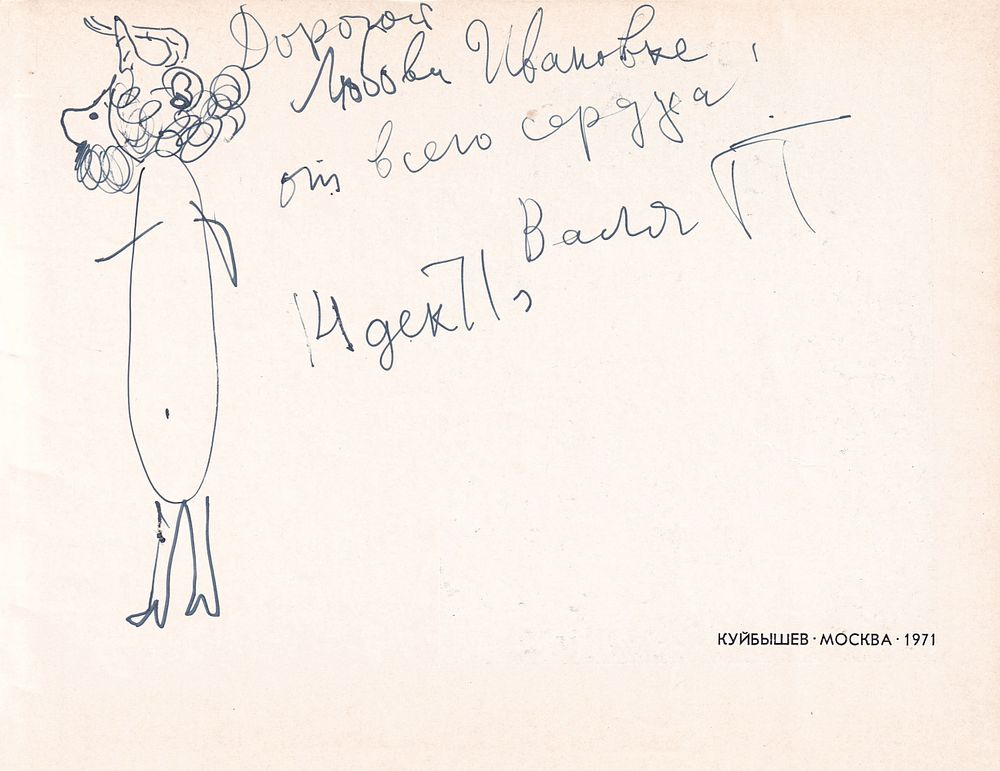 Дорогой
Любови Ивановне,
от всего сердца
Валя П
14 дек 71 г
КУЙБЫШЕВ · МОСКВА · 1971